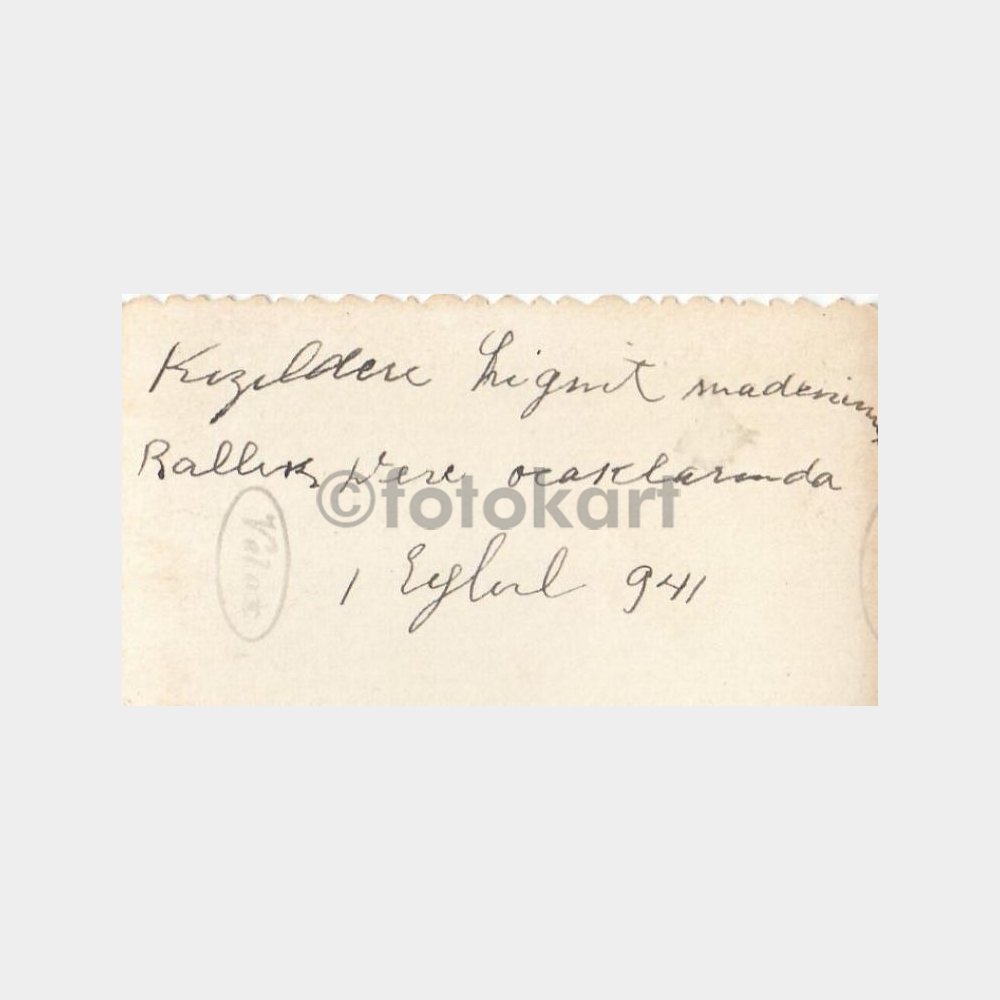 Kızıldere Lignit madenının
Ballık Dere ocaklarında
©fotokart
1 Eylül 941
Velox